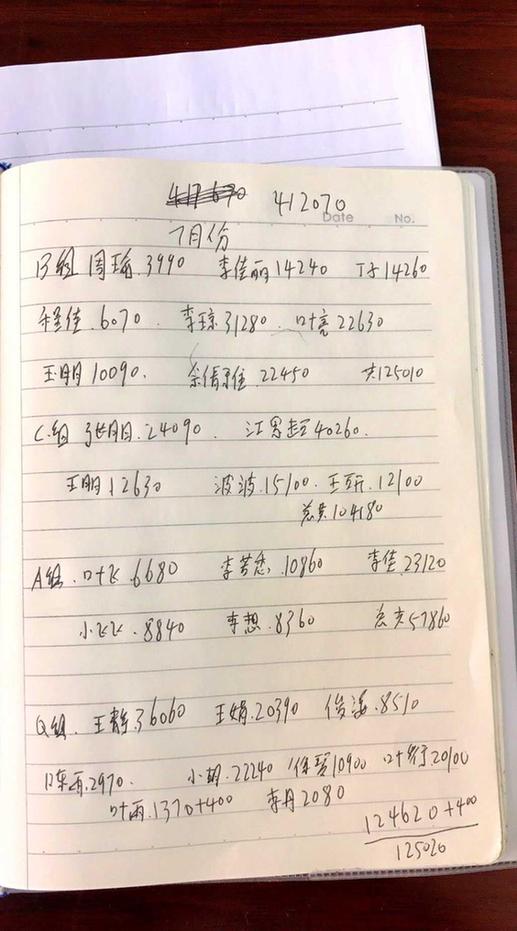 417670 412070
Date No.
7月份
B组 周瑜.3990 李佳丽14240 丁子14260
程佳.6070. 李琼31280. 叶亮22630
王明10090. 余倩雅.22450 共125010
C.组 张明.24090. 江思超40260.
王明.12630 波波.15100. 王新.12100
总共104180
A组.叶飞.6680 李芳.10860 李佳.23120
小飞飞.8840 李想.8360 总共57860
Q组. 王静.36060 王娟.20390 俊溪.8510
陈雨.2970. 小胡.22240 保贤10900 叶行20100
叶雨.1370+400 李丹2080
124620+400
125020